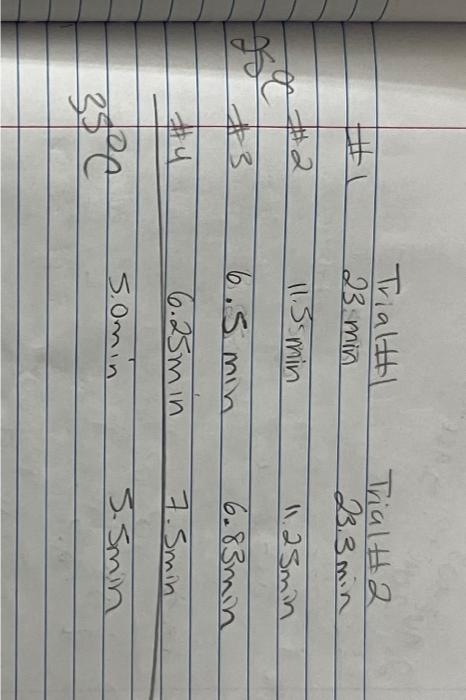 Trial #1 Trial #2
#1 23 min 23.3 min
25°C #2 11.5 min 11.25min
#3 6.5 min 6.83min
#4 6.25min 7.5min
35°C 5.0min 5.5min